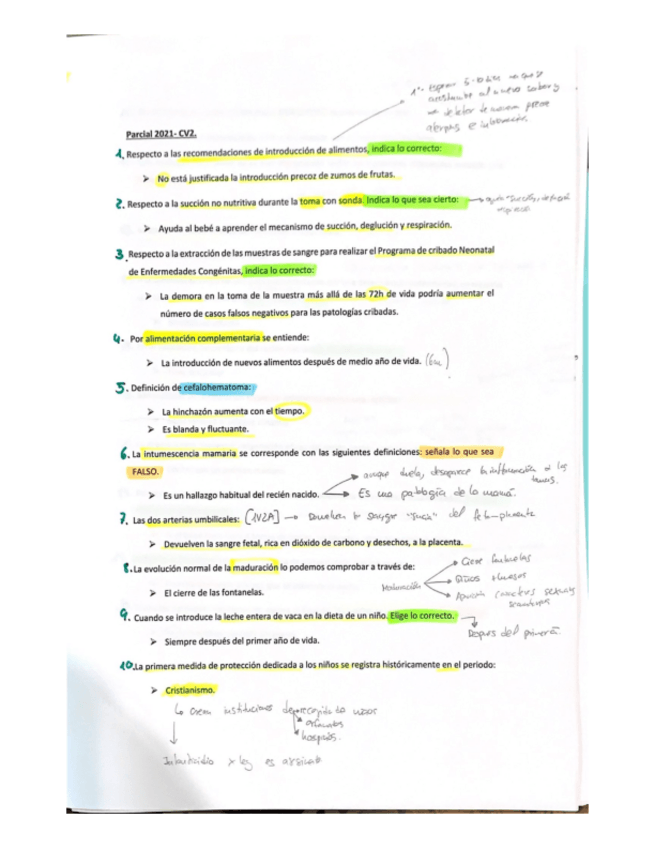 1º- esperar 5-10 días
alergias e intolerancias.
Parcial 2021- CV2.
1. Respecto a las recomendaciones de introducción de alimentos, indica lo correcto:
➢ No está justificada la introducción precoz de zumos de frutas.
2. Respecto a la succión no nutritiva durante la toma con sonda. Indica lo que sea cierto:
➢ Ayuda al bebé a aprender el mecanismo de succión, deglución y respiración.
3. Respecto a la extracción de las muestras de sangre para realizar el Programa de cribado Neonatal
de Enfermedades Congénitas, indica lo correcto:
➢ La demora en la toma de la muestra más allá de las 72h de vida podría aumentar el
número de casos falsos negativos para las patologías cribadas.
4. Por alimentación complementaria se entiende:
➢ La introducción de nuevos alimentos después de medio año de vida. (6m)
5. Definición de cefalohematoma:
➢ La hinchazón aumenta con el tiempo.
➢ Es blanda y fluctuante.
6. La intumescencia mamaria se corresponde con las siguientes definiciones: señala lo que sea
FALSO.
aunque duela, desaparece la inflamación
➢ Es un hallazgo habitual del recién nacido. Es una patología de la mamá.
7. Las dos arterias umbilicales: [1V2A] → Devuelven la sangre "sucia" del feto-placenta
➢ Devuelven la sangre fetal, rica en dióxido de carbono y desechos, a la placenta.
8. La evolución normal de la maduración lo podemos comprobar a través de:
➢ El cierre de las fontanelas.
Maduración
Cierre fontanelas
Aparición caracteres sexuales
secundarios
9. Cuando se introduce la leche entera de vaca en la dieta de un niño. Elige lo correcto.
Después del primer a.
➢ Siempre después del primer año de vida.
10. La primera medida de protección dedicada a los niños se registra históricamente en el periodo:
➢ Cristianismo.
↳ Crean instituciones de recogida de
orfanatos
hospicios.
Infanticidio x ley es asesinato